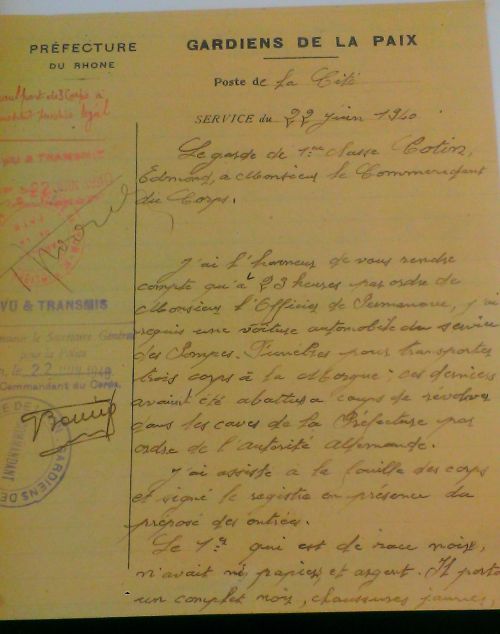 PRÉFECTURE
DU RHONE
GARDIENS DE LA PAIX
Poste de La Cité
SERVICE du 22 juin 1940
Transport de 3 Corps à
institut légal
VU & TRANSMIS
22 JUIN 1940
Le garde de 1ère classe Cotin,
Edmond, à Monsieur le Commandant
du Corps.
J'ai l'honneur de vous rendre
compte qu'à 23 heures par ordre de
Monsieur l'Officier de Permanence, j'ai
requis une voiture automobile du service
des Pompes Funèbres pour transporter
trois corps à la Morgue ; ces derniers
avaient été abattus à coups de revolver
dans les caves de la Préfecture par
ordre de l'autorité allemande.
J'ai assisté à la fouille des corps
et signé le registre en présence du
préposé des entrées.
Le 1er qui est de race noire,
n'avait ni papiers et argent. Il porte
un complet noir, chaussures jaunes,
VU & TRANSMIS
le Secrétaire Général
pour la Police
le 22 JUIN 1940
Commandant du Corps,
GARDIENS DE
COMMANDANT